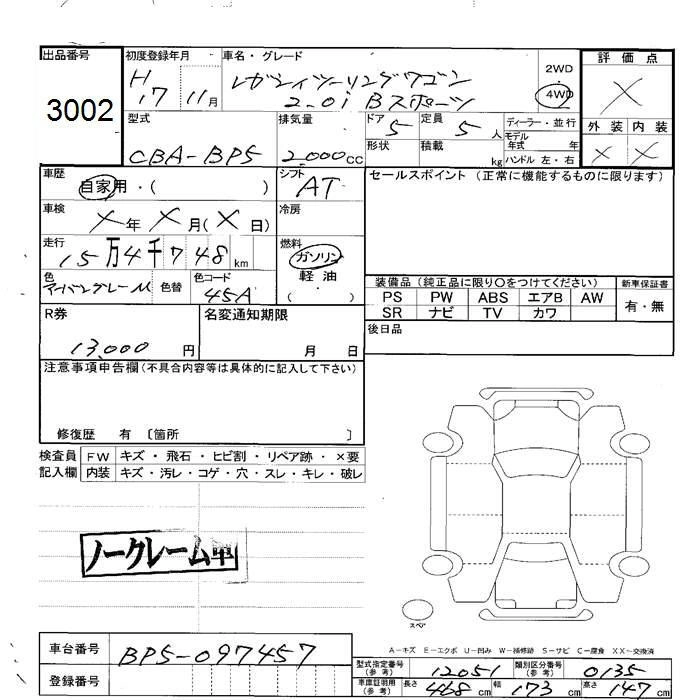 出品番号
3002
初度登録年月
H 17 11月
車名・グレード
レガシィツーリングワゴン
2.0i Bスポーツ
2WD
4WD
評価点
×
外装 内装
× ×
型式
CBA-BP5
排気量
2,000cc
ドア 5
定員 5人
形状
積載 kg
ディーラー・並行
モデル年式 年
ハンドル 左・右
車歴
自家用・( )
シフト
AT
車検
×年×月(×日)
冷房
走行
15万4千748km
燃料
ガソリン
軽油
( ・ )
色
アーバングレーM
色替
色コード
45A
R券
13,000円
名変通知期限
月 日
セールスポイント (正常に機能するものに限ります)
装備品 (純正品に限り○をつけてください)
PS PW ABS エアB AW
SR ナビ TV カワ
新車保証書
有・無
後日品
注意事項申告欄(不具合内容等は具体的に記入して下さい)
修復歴 有 〔箇所 〕
検査員 FW キズ・飛石・ヒビ割・リペア跡・×要
記入欄 内装 キズ・汚レ・コゲ・穴・スレ・キレ・破レ
ノークレーム車
スペア
A-キズ E-エクボ U-凹み W-補修跡 S-サビ C-腐食 XX-交換済
車台番号
BP5-097457
登録番号
型式指定番号(参考) 12051 類別区分番号(参考) 0135
車庫証明用(参考) 長さ 468cm 幅 173cm 高さ 147cm